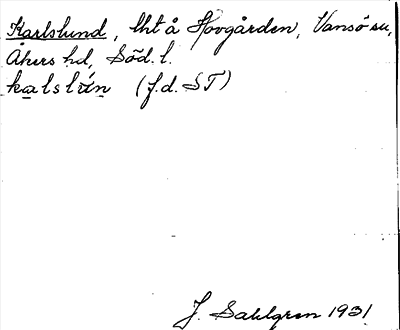 Karlslund, lht å Hovgården, Vansö sn,
Åkers hd, Söd. l.
(f.d. ST)
J. Sahlgren 1931